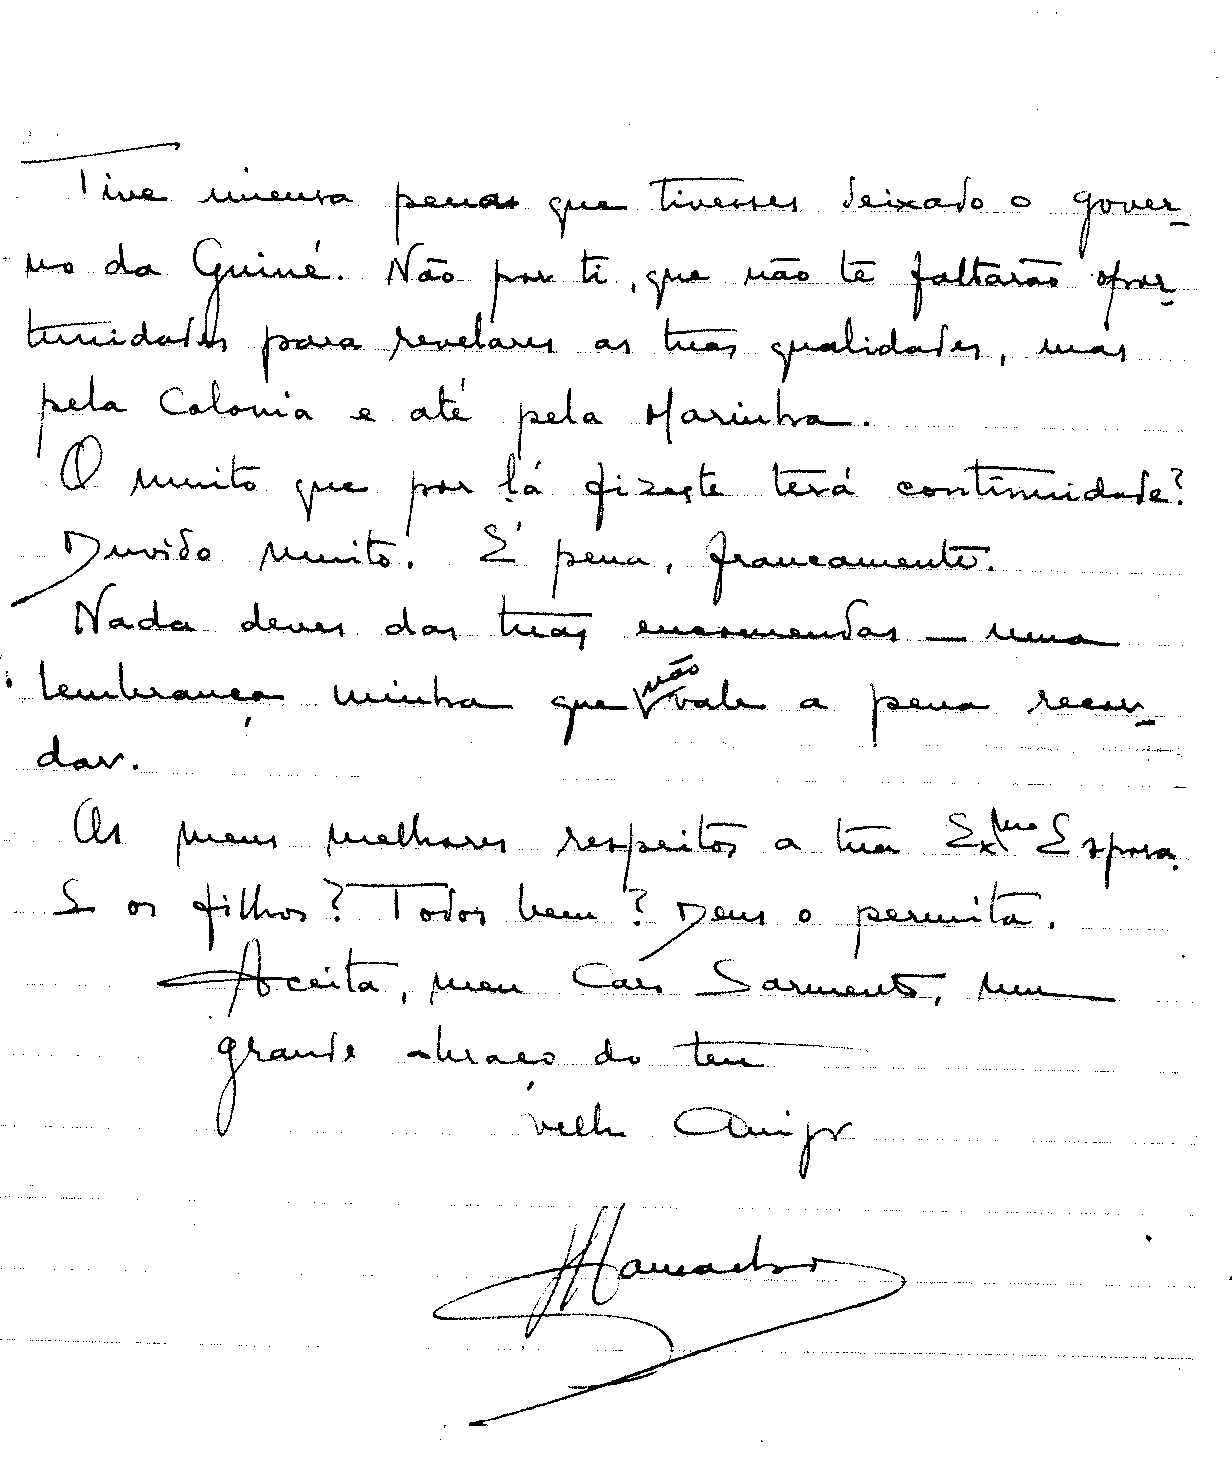 Tive imensa pena que tivesses deixado o gover-
no da Guiné. Não por ti, que não te faltarão opor-
tunidades para revelares as tuas qualidades, mas
pela Colonia e até pela Marinha.
O muito que por lá fizeste terá continuidade?
Duvido muito. É pena, francamente.
Nada deves das tuas encomendas – uma
lembrança minha que não vale a pena recor-
dar.
Os meus melhores respeitos a tua Exma Esposa.
E os filhos? Todos bem? Deus o permita.
Aceita, meu Caro Sarmento, um
grande abraço do teu
velho Amigo